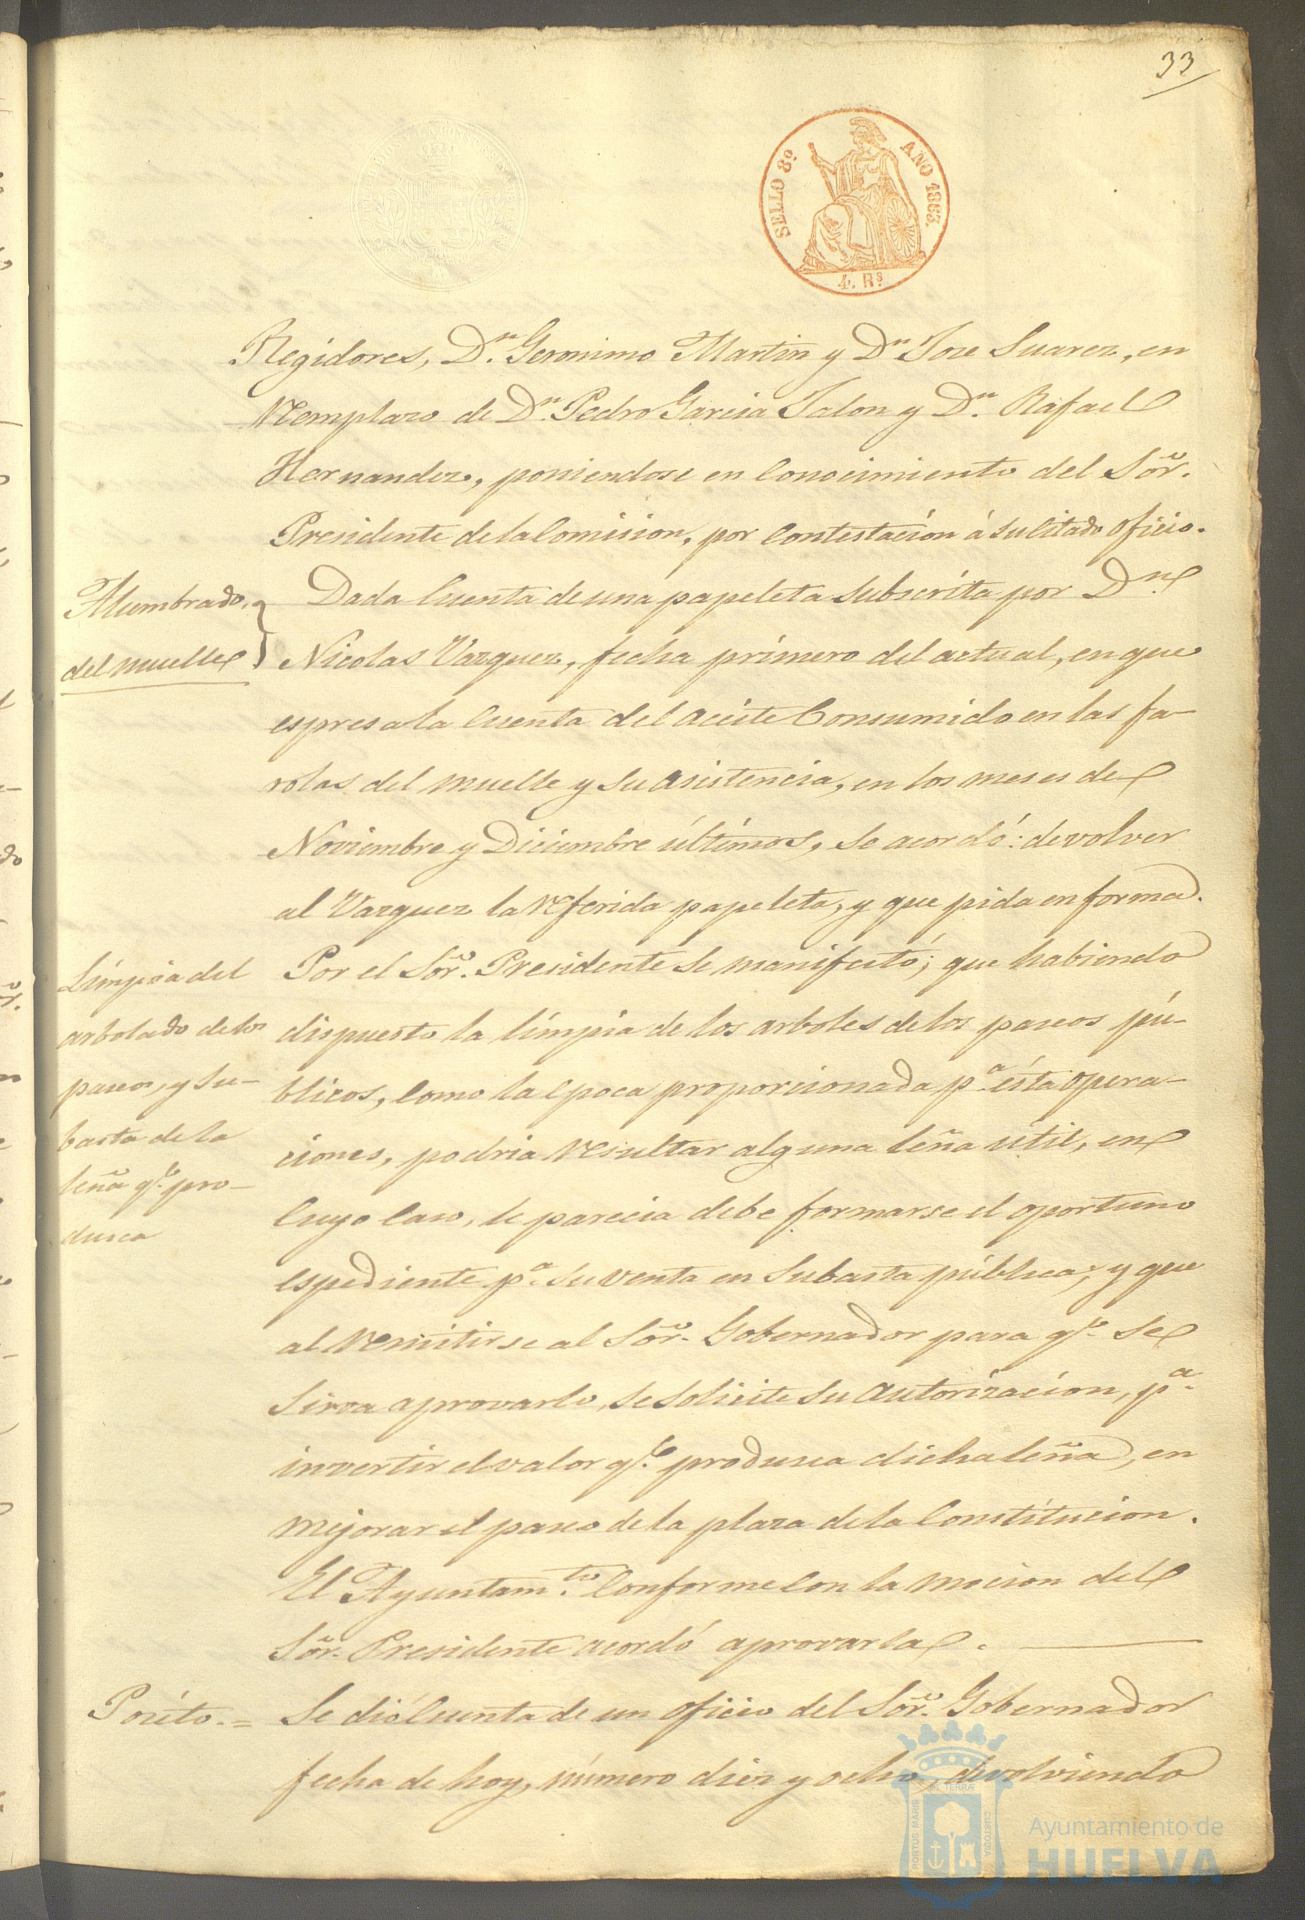 33
SELLO 8º AÑO 1863.
4. Rs
Regidores, Dn. Geronimo Martin y Dn Jose Suarez, en
reemplazo de Dn. Pedro Garcia Jalon y Dn. Rafael
Hernandez, poniendose en conocimiento del Sor.
Presidente de la Comision, por contestación á su citado oficio.
Alumbrado
del muelle
Dada cuenta de una papeleta subscrita por Dn.
Nicolas Vazquez, fecha primero del actual, en que
espresa la cuenta del aceite consumido en las fa-
rolas del muelle y su asistencia, en los meses de
Noviembre y Diciembre últimos, se acordó: devolver
al Vazquez la referida papeleta, y que pida en forma.
Limpia del
arbolado de los
paseos, y su-
basta de la
leña qe. pro-
dusca
Por el Sor. Presidente se manifestó; que habiendo
dispuesto la limpia de los arboles de los paseos pú-
blicos, como la época proporcionada pa. ésta opera-
ciones, podria resultar alguna leña util, en
cuyo caso, le parecia debe formarse el oportuno
espediente pa. su venta en subasta pública; y que
al remitirse al Sor. Gobernador para qe. se
sirva aprovarlo, se solicite su autorizacion, pa.
invertir el valor qe. produsca dicha leña, en
mejorar el paseo de la plaza de la Constitucion.
El Ayuntamto. conforme con la mocion del
Sor. Presidente acordó aprovarla.
Pósito.=
Se dió cuenta de un oficio del Sor. Gobernador
fecha de hoy, número diez y ocho, devolviendo
PORTUS MARIS ET TERRAE CUSTODIA
Ayuntamiento de
HUELVA